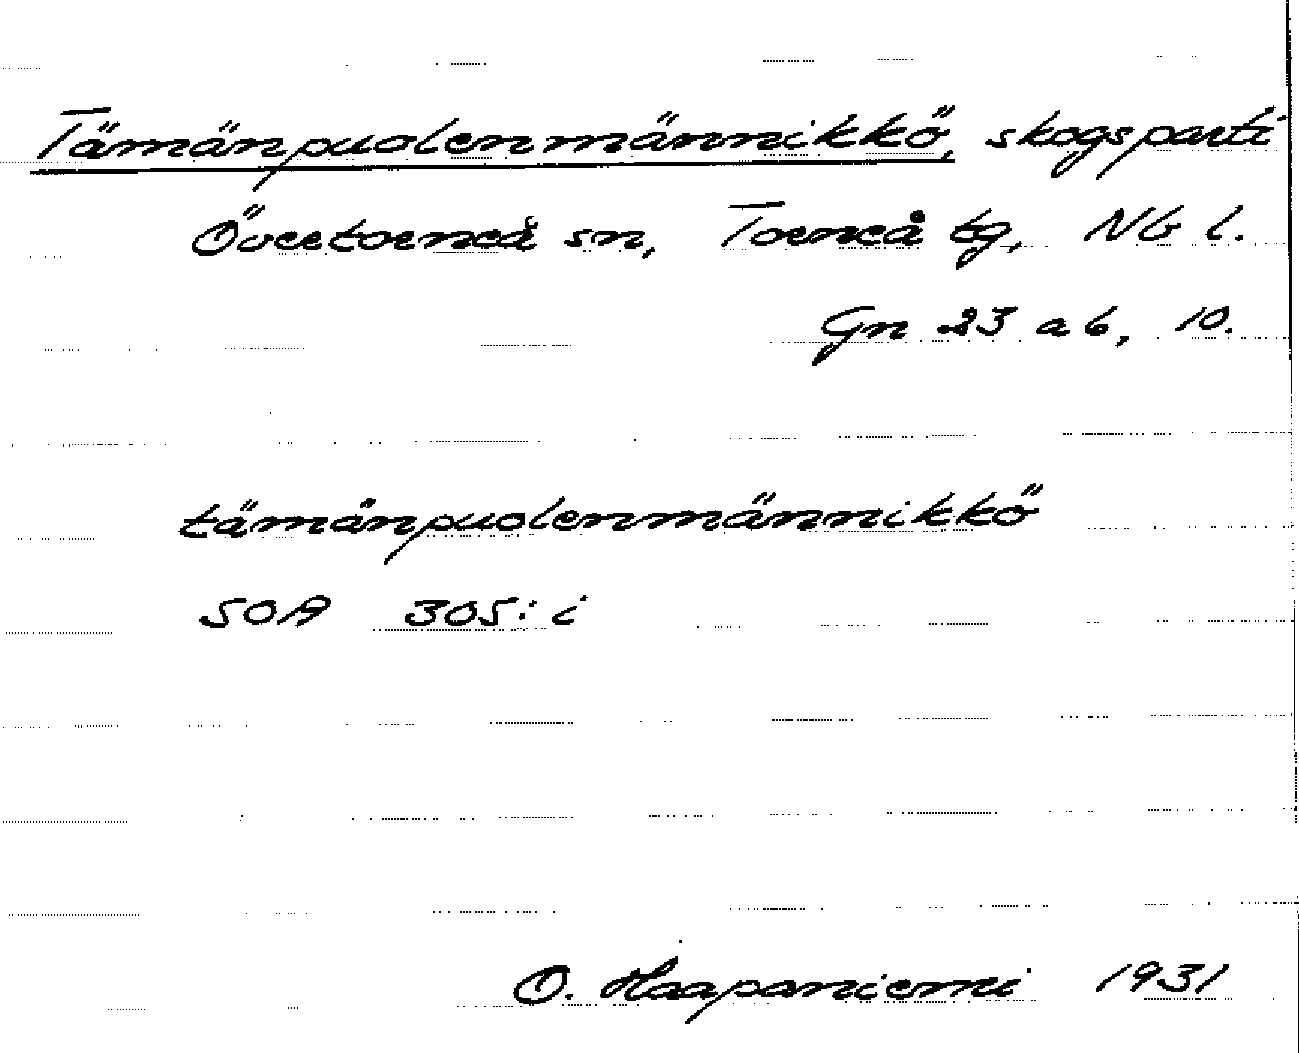 Tämänpuolenmännikkö, skogsparti
Övertorneå sn, Torneå tg, Nb l.
Gn 23 a b, 10.
tämänpuolenmännikkö
SOA 305: i
O. Haapaniemi 1931